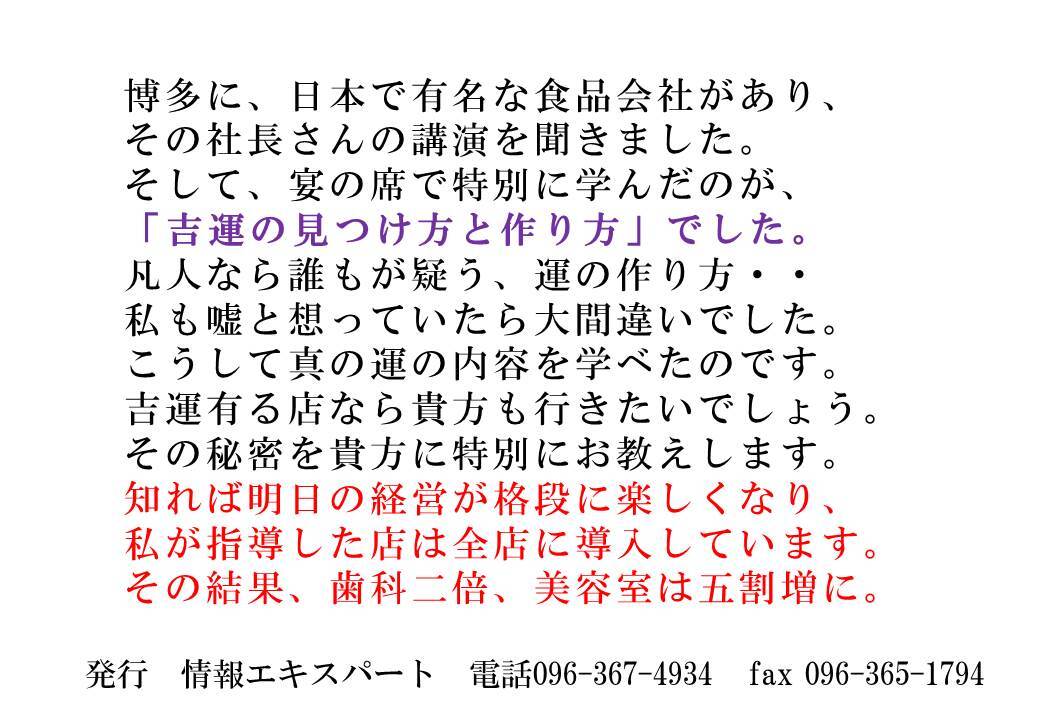 博多に、日本で有名な食品会社があり、
その社長さんの講演を聞きました。
そして、宴の席で特別に学んだのが、
「吉運の見つけ方と作り方」でした。
凡人なら誰もが疑う、運の作り方・・
私も嘘と想っていたら大間違いでした。
こうして真の運の内容を学べたのです。
吉運有る店なら貴方も行きたいでしょう。
その秘密を貴方に特別にお教えします。
知れば明日の経営が格段に楽しくなり、
私が指導した店は全店に導入しています。
その結果、歯科二倍、美容室は五割増に。
発行　情報エキスパート　電話096-367-4934　fax 096-365-1794